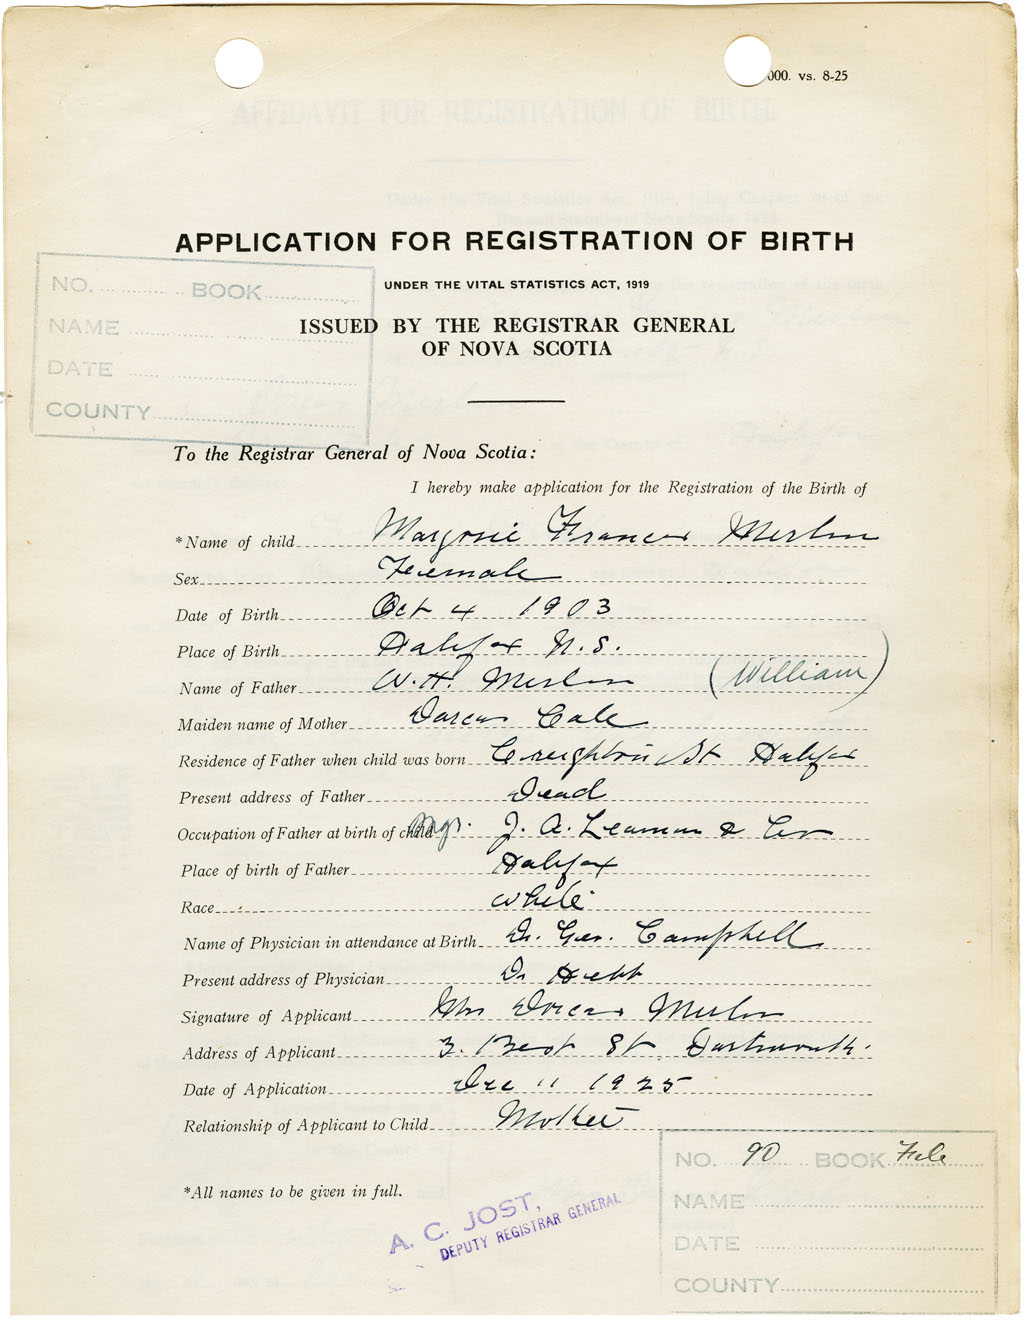 000. vs. 8-25
APPLICATION FOR REGISTRATION OF BIRTH
UNDER THE VITAL STATISTICS ACT, 1919
ISSUED BY THE REGISTRAR GENERAL
OF NOVA SCOTIA
NO. BOOK
NAME
DATE
COUNTY
To the Registrar General of Nova Scotia:
I hereby make application for the Registration of the Birth of
*Name of child Marjorie Frances Merlin
Sex Female
Date of Birth Oct 4 1903
Place of Birth Halifax N.S.
Name of Father W.H. Merlin (William)
Maiden name of Mother Dorcas
Residence of Father when child was born Creighton St Halifax
Present address of Father Dead
Occupation of Father at birth of child Mgr. J. A. Leaman & Co
Place of birth of Father Halifax
Race White
Name of Physician in attendance at Birth Dr. Geo. Campbell
Present address of Physician Dr
Signature of Applicant Mrs Dorcas Merlin
Address of Applicant 3. St. Dartmouth.
Date of Application Dec 11 1925
Relationship of Applicant to Child Mother
*All names to be given in full.
A. C. JOST,
DEPUTY REGISTRAR GENERAL
NO. 90 BOOK File
NAME
DATE
COUNTY